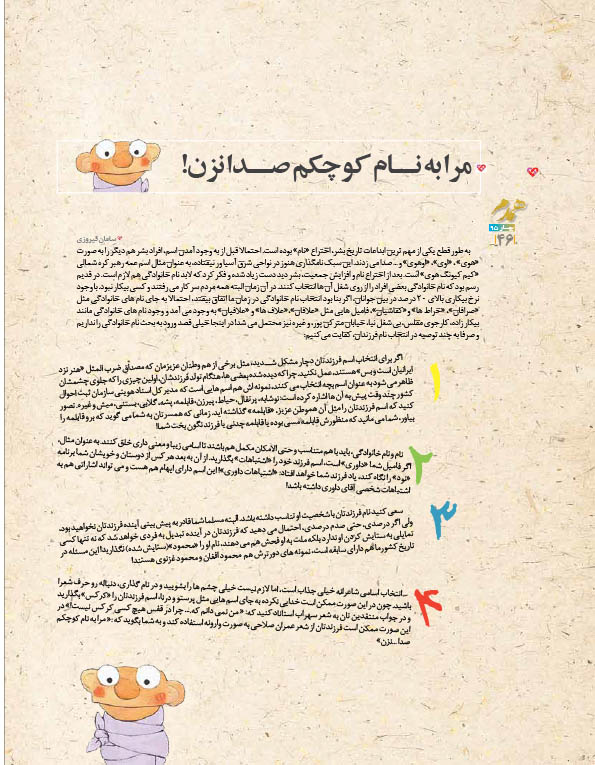 مرا به نام کوچکم صدا نزن!
بهار ۹۵
۴۶
سامان گیروزی
به طور قطع یکی از مهم ترین ابداعات تاریخ بشر، اختراع «نام» بوده است. احتمالا قبل از به وجود آمدن اسم، افراد بشر هم دیگر را به صورت
«هوی»، «اوی»، «اوهوی» و ... صدا می زدند. این سبک نامگذاری هنوز در نواحی شرق آسیا ور نیفتاده، به عنوان مثال اسم عمه رهبر کره شمالی
«کیم کیونگ هوی» است. بعد از اختراع نام و افزایش جمعیت، بشر دید دست زیاد شده و فکر کرد که لابد نام خانوادگی هم لازم است. در قدیم
رسم بود که نام خانوادگی بعضی افراد را از روی شغل آن ها انتخاب کنند. در آن زمان البته همه مردم سر کار می رفتند و کسی بیکار نبود. با وجود
نرخ بیکاری بالای ۲۰ درصد در بین جوانان، اگر بنا بود انتخاب نام خانوادگی در زمان ما اتفاق بیفتد، احتمالا به جای نام های خانوادگی مثل
«صرافان»، «خراط ها» و «کفاشیان»، فامیل هایی مثل «علافان»، «علاف ها» و «علافیان» به وجود می آمد و وجود نام های خانوادگی مانند
بیکار زاده، کار جوی مقلس، بی شغل نیا، خیابان متر کن پور، و غیره نیز محتمل می شد! در اینجا خیلی قصد ورود به بحث نام خانوادگی را نداریم
و صرفا به چند توصیه در انتخاب نام فرزندتان، کفایت می کنیم:
۱
اگر برای انتخاب اسم فرزندتان دچار مشکل شدید، مثل برخی از هم وطنان عزیزمان که مصداق ضرب المثل «هنر نزد
ایرانیان است و بس» هستند، عمل نکنید. چرا که دیده شده بعضی ها، هنگام تولد فرزندشان، اولین چیزی را که جلوی چشمشان
ظاهر می شود به عنوان اسم بچه انتخاب می کنند. نمونه اش هم اسم هایی است که مدیر کل اسناد هویتی سازمان ثبت احوال
کشور چند وقت پیش به آن ها اشاره کرده است: نوشابه، پرتقال، حیاط، پیرزن، قابلمه، پشه، گلابی، بستنی، میش و غیره. تصور
کنید که اسم فرزندتان را مثل آن هموطن عزیز، «قابلمه» گذاشته اید. زمانی که همسرتان به شما می گوید که برو قابلمه را
بیاور، شما می مانید که منظورش قابلمه مسی بوده یا قابلمه چدنی یا فرزند نگون بخت شما!!
۲
نام و نام خانوادگی، باید با هم متناسب و حتی الامکان مکمل هم باشند تا اسامی زیبا و معنی داری خلق کنند. به عنوان مثال،
اگر فامیل شما «داوری» است، اسم فرزند خود را «اشتباهات» بگذارید. از آن به بعد هر کس از دوستان و خویشان شما برنامه
«نود» را نگاه کند، یاد فرزند شما خواهد افتاد: «اشتباهات داوری»! این اسم دارای ایهام هم هست و می تواند اشاراتی هم به
اشتباهات شخصی آقای داوری داشته باشد!
۳
سعی کنید نام فرزندتان با شخصیت او تناسب داشته باشد. البته مسلما شما قادر به پیش بینی آینده فرزندتان نخواهید بود.
ولی اگر درصدی، حتی صدم درصدی، احتمال می دهید که فرزندتان در آینده تبدیل به فردی خواهد شد که نه تنها کسی
تمایلی به ستایش کردن او ندارد بلکه ملت به او فحش هم می دهند، نام او را «محمود» (ستایش شده) نگذارید! این مسئله در
تاریخ کشور ما هم دارای سابقه است، نمونه های دور ترش هم محمود افغان و محمود غزنوی هستند!
۴
ـ انتخاب اسامی شاعرانه خیلی جذاب است، اما لازم نیست خیلی چشم ها را بشویید و در نام گذاری، دنباله رو حرف شعرا
باشید. چون در این صورت ممکن است خدایی نکرده به جای اسم هایی مثل پرستو و درنا، اسم فرزندتان را «کرکس» بگذارید
و در جواب منتقدین تان به شعر سهراب استناد کنید که: «من نمی دانم که ... چرا در قفس هیچ کسی کرکس نیست!» در
این صورت ممکن است فرزندتان از شعر عمران صلاحی به صورت وارونه استفاده کند و به شما بگوید که: «مرا به نام کوچکم
صدا...نزن»